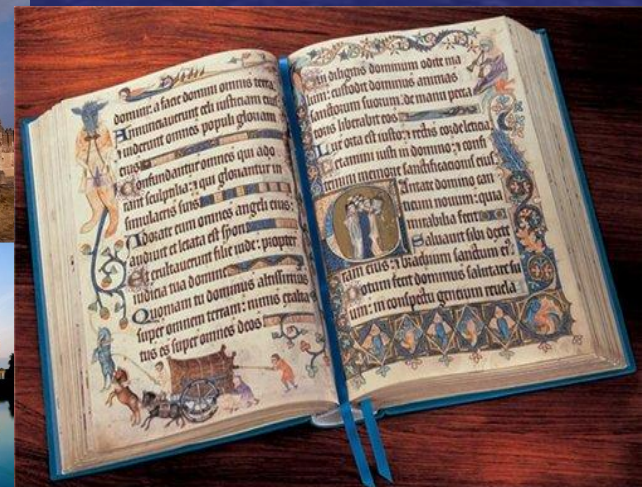 domini: a facie domini omnis terra.
Annunciaverunt celi iusticiam eius:
⁊ viderunt omnes populi gloriam
eius
Confundantur omnes qui ado
rant sculptilia: ⁊ qui gloriantur in
simulacris suis
Adorate eum omnes angeli eius:
audivit et letata est syon
Et exultaverunt filie iude: propter
iudicia tua domine
Quoniam tu dominus altissimus
super omnem terram: nimis exalta
tus es super omnes deos
Qui diligitis dominum odite ma
lum: custodit dominus animas
sanctorum suorum: de manu pecca
toris liberabit eos
Lux orta est iusto: ⁊ rectis corde leticia.
Letamini iusti in domino: ⁊ confi
temini memorie sanctificationis eius.
Cantate domino can
ticum novum: quia
mirabilia fecit
Salvavit sibi dexte
ra eius: ⁊ brachium sanctum ei
Notum fecit dominus salutare su
um: in conspectu gentium revela